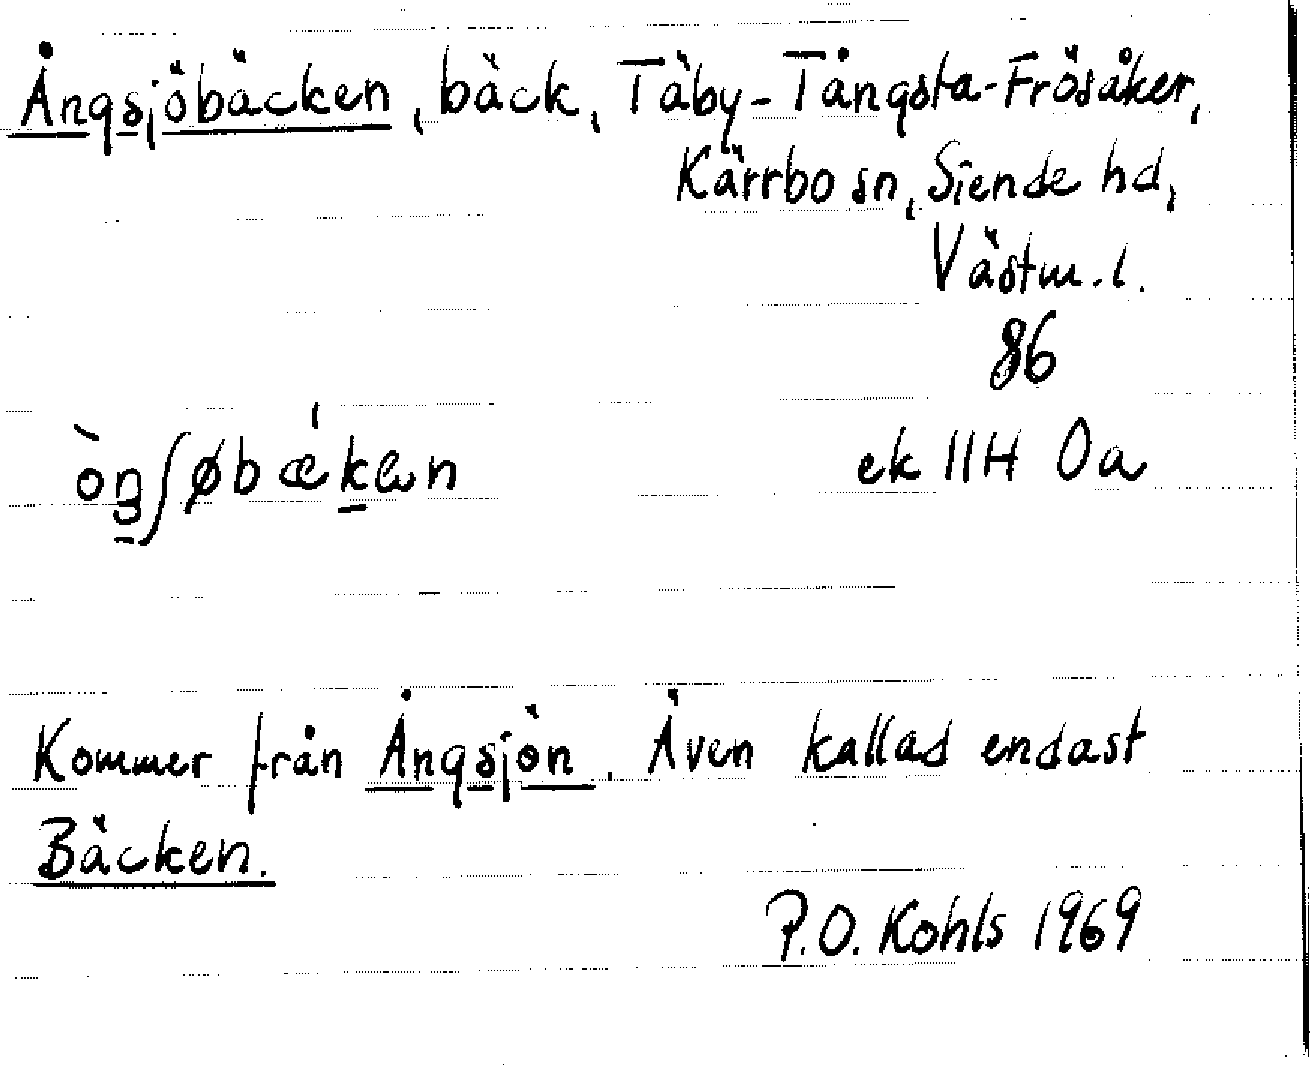 Ångsjöbäcken, bäck, Täby-Tångsta-Frösåker,
Kärrbo sn, Siende hd,
Västm.l.
86
òŋʃøbæ̀kən
ek 11H 0a
Kommer från Ångsjön. Även kallad endast
Bäcken.
P.O. Kohls 1969